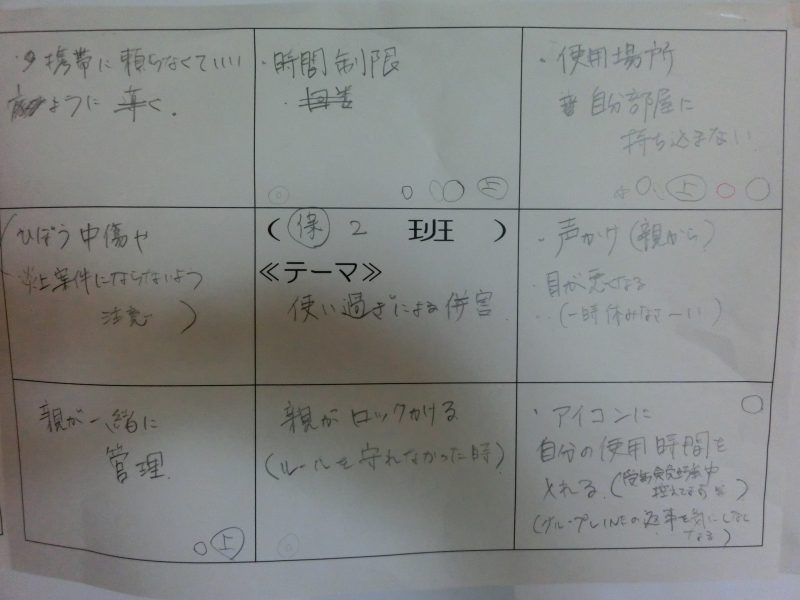 ・携帯に頼らなくていい
ように
・時間制限
・使用場所
自分部屋に
持ち込まない
(ひぼう中傷や
炎上案件にならないよう
注意)
(保2 班)
≪テーマ≫
使い過ぎによる併害
・声かけ(親から)
・目が悪くなる
(一時休みなさーい)
親が一緒に
管理
上
親がロックかける
(ルールを守れなかった時)
・アイコンに
自分の使用時間を
入れる。(
控えてます
(グループLINEの返事を気にしなく
なる)